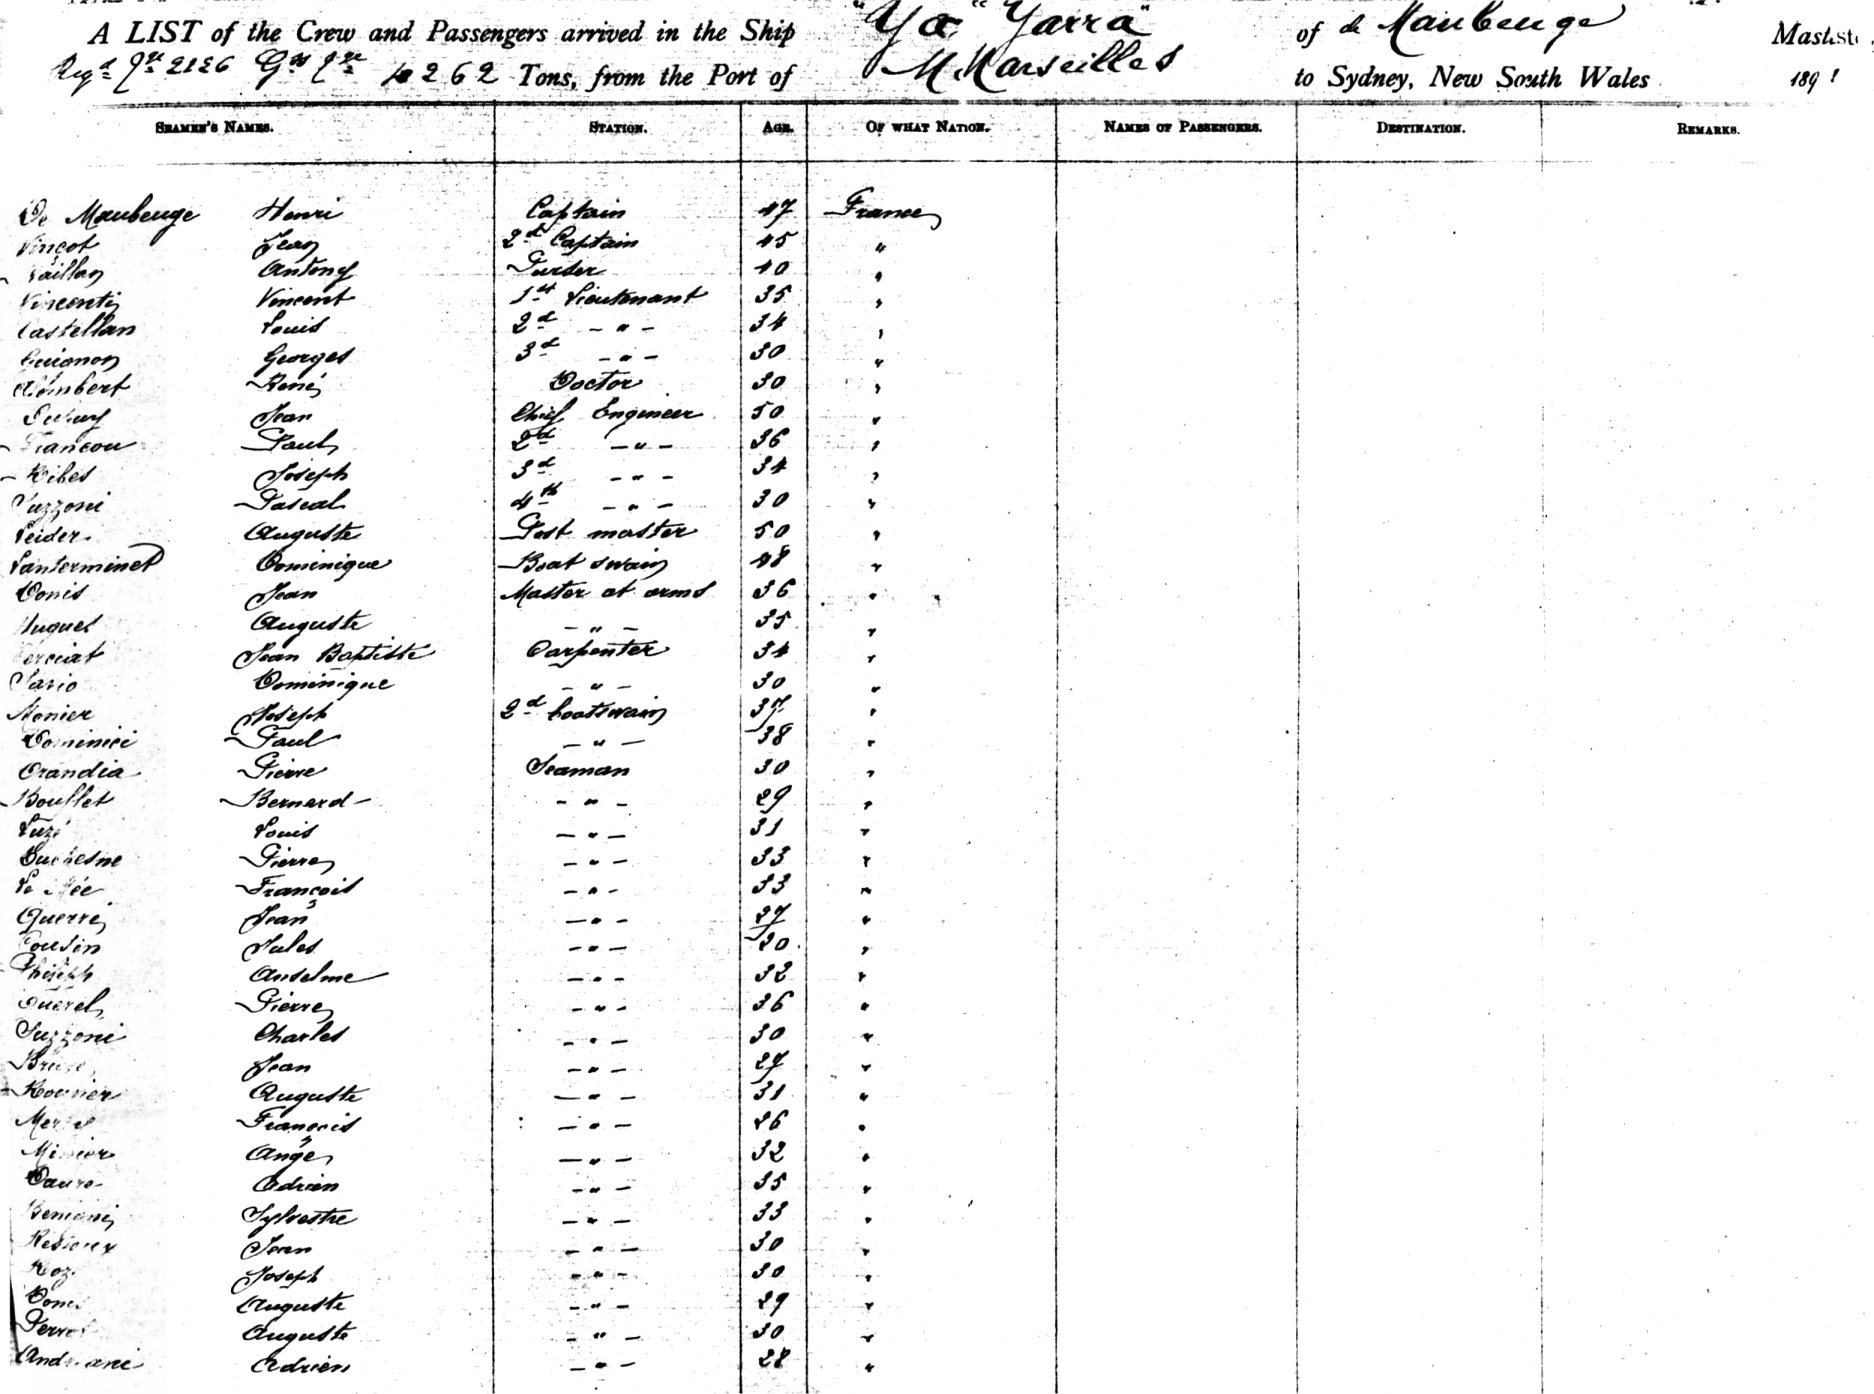 A LIST of the Crew and Passengers arrived in the Ship "Yarra" of de Maubeuge
Tons, from the Port of Marseilles to Sydney, New South Wales 1891
SEAMEN'S NAMES. STATION. AGE. OF WHAT NATION. NAMES OF PASSENGERS. DESTINATION. REMARKS.
De Maubeuge Henri Captain 47 France
Vincot Jean 2d Captain 45 "
Antony Purser 40 "
Vincenti Vincent 1st Lieutenant 35 "
Castellan Louis 2d - " - 34 "
Guignon Georges 3d - " - 30 "
René Doctor 30 "
Jean Chief Engineer 50 "
Paul 2d - " - 36 "
Ribes Joseph 3d - " - 34 "
Suzzoni Pascal 4th - " - 30 "
Leider Auguste Post master 50 "
Santerminet Dominique Boat swain 48 "
Donis Jean Master at arms 36 "
Hugues Auguste - " - 35 "
Jean Baptiste Carpenter 34 "
Dominique - " - 30 "
Monier Joseph 2d boatswain 37 "
Dominici Paul - " - 38 "
Orandia Pierre Seaman 30 "
Boullet Bernard - " - 29 "
Louis - " - 31 "
Duchesne Pierre - " - 33 "
François - " - 33 "
Querré Jean - " - 27 "
Cousin Jules - " - 30 "
Anselme - " - 32 "
Querel Pierre - " - 36 "
Suzzoni Charles - " - 30 "
Jean - " - 27 "
Auguste - " - 31 "
François - " - 26 "
Ange - " - 32 "
Adrien - " - 35 "
Sylvestre - " - 33 "
Jean - " - 30 "
Joseph - " - 30 "
Auguste - " - 29 "
Auguste - " - 30 "
Adrien - " - 28 "